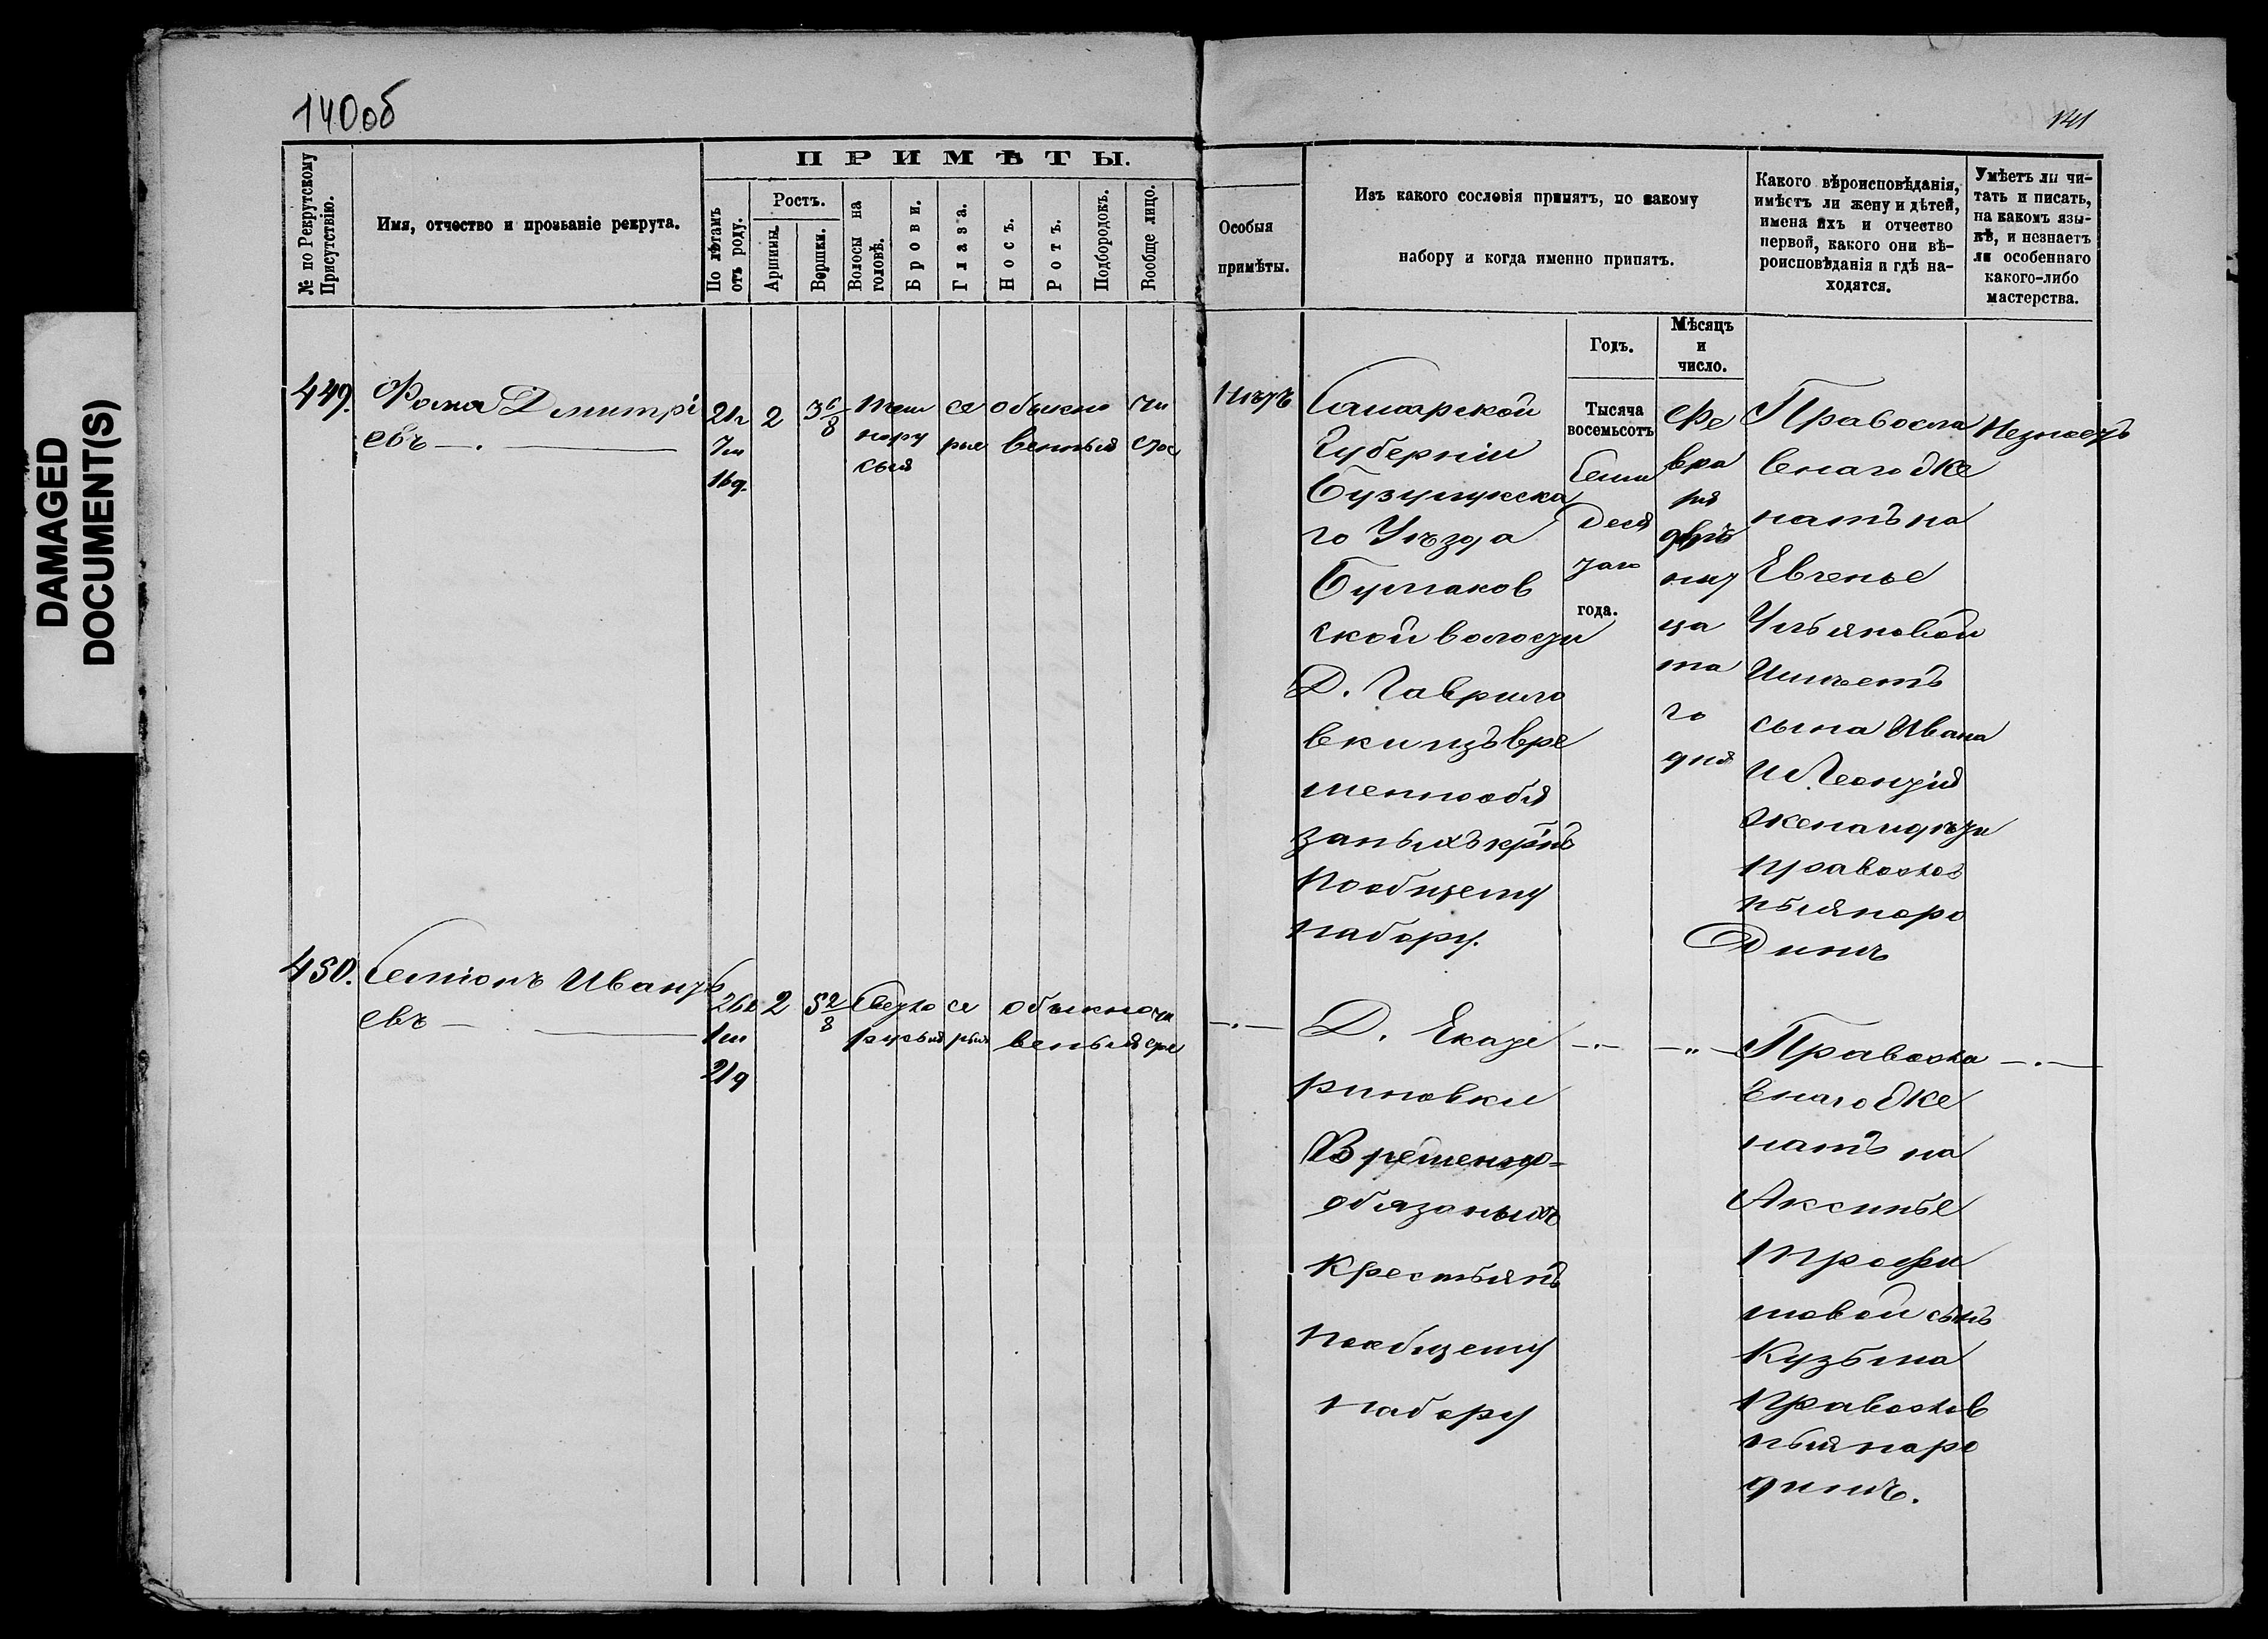 140об
141
DAMAGED
DOCUMENT(S)
№ по Рекрутскому
Присутствію.
Имя, отчество и прозьаніе рекрута.
ПРИМѢТЫ.
По лѣтамъ
отъ роду.
Ростъ.
Аршины.
Вершки.
Волосы на
головѣ.
Брови.
Глаза.
Носъ.
Ротъ.
Подбородокъ.
Вообще лицо.
Особыя
примѣты.
Изъ какого сословія принятъ, по какому
набору и когда именно принятъ.
Годъ.
Мѣсяцъ
и
число.
Какого вѣроисповѣданія,
имѣетъ ли жену и дѣтей,
имена ихъ и отчество
первой, какого они вѣ-
роисповѣданія и гдѣ на-
ходятся.
Умѣетъ ли чи-
тать и писать,
на какомъ язы-
кѣ, и незнаетъ
ли особеннаго
какого-либо
мастерства.
449.
Фома Дмитрі
евъ
21г
7м
16д.
2
3 6/8
Тем
нору
сыя
се
рые
обыкно
венныя
чи
стое
Нѣтъ
Самарской
Губерніи
Бузулукска
го Уѣзда
Булгаков
ской волости
Д. Гаврило
вки изъ вре
меннообя
заныхъ крнъ
пообщему
набору.
Тысяча
восемьсотъ
Семи
деся
таго
года.
Фе
вра
ля
двѣ
над
ца
та
го
дня
Правосла
внаго Же
натъ на
Евгенье
Ульяновой
Имѣетъ
сына Ивана
и Леонтія
жена и дѣти
правослов
ныя на ро
динѣ
Незнаетъ
450.
Семіонъ Ивантѣ
евъ
26л
1м
21д
2
5 2/8
Светло
русыя
се
рыя
обыкно
веныя
чи
стое
Д. Екате
риновки
Временно=
обязаныхъ
крестьянъ
пообщему
набору
Правосла
внаго Же
натъ на
Аксинье
Трофи
мовой сынъ
Кузьма
Правослов
ныя на ро
динѣ.